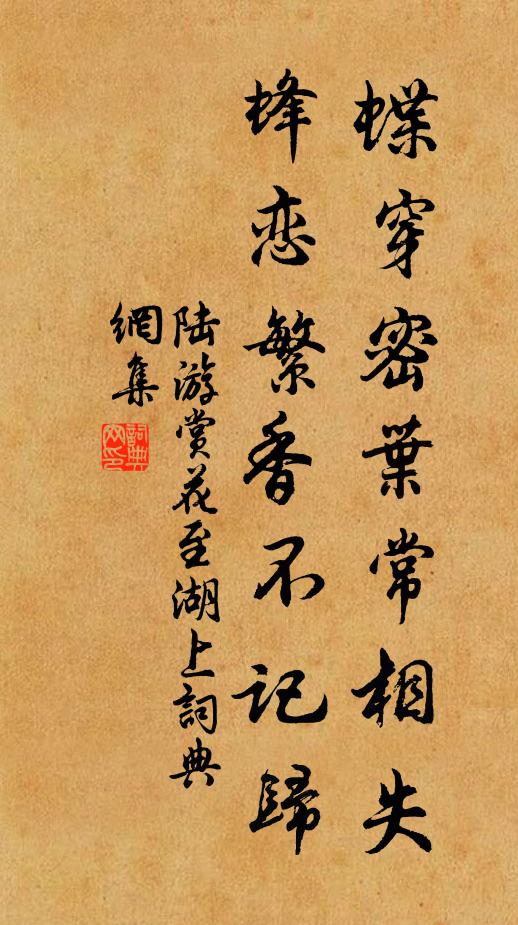 蝶穿密葉常相失
蜂恋繁香不记歸
陆游赏花至湖上詞典
網集
詞典
网印